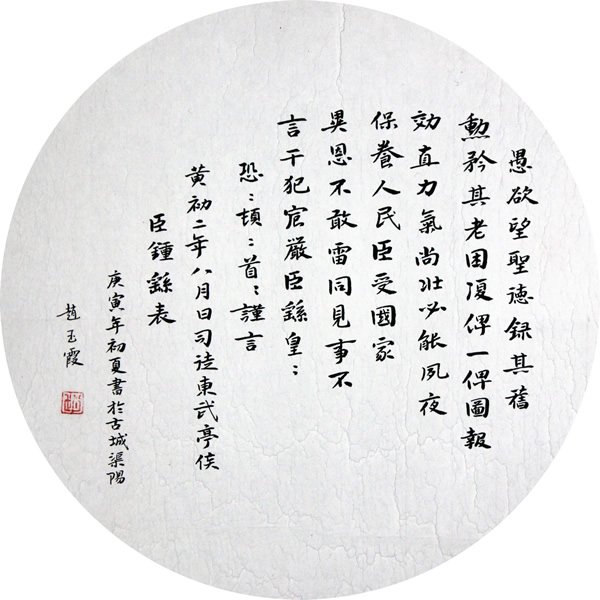 愚欲望聖德録其舊
勳矜其老困復俾一俾圖報
効直力氣尚壯必能夙夜
保養人民臣受國家
異恩不敢雷同見事不
言干犯宸嚴臣繇皇：
恐：頓：首：謹言
黄初二年八月日司徒東武亭侯
臣鍾繇表
庚寅年初夏書於古城渠陽
趙玉霞